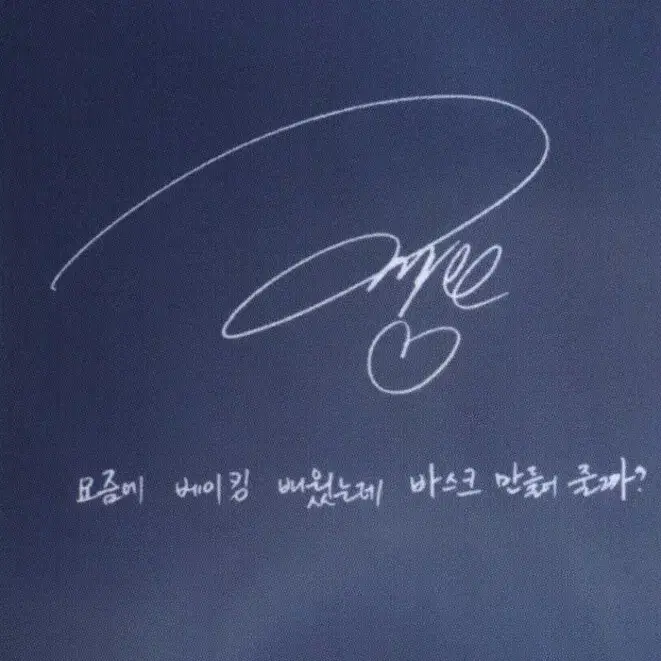 요즘에 베이킹 배웠는데 바스크 만들어 줄까?